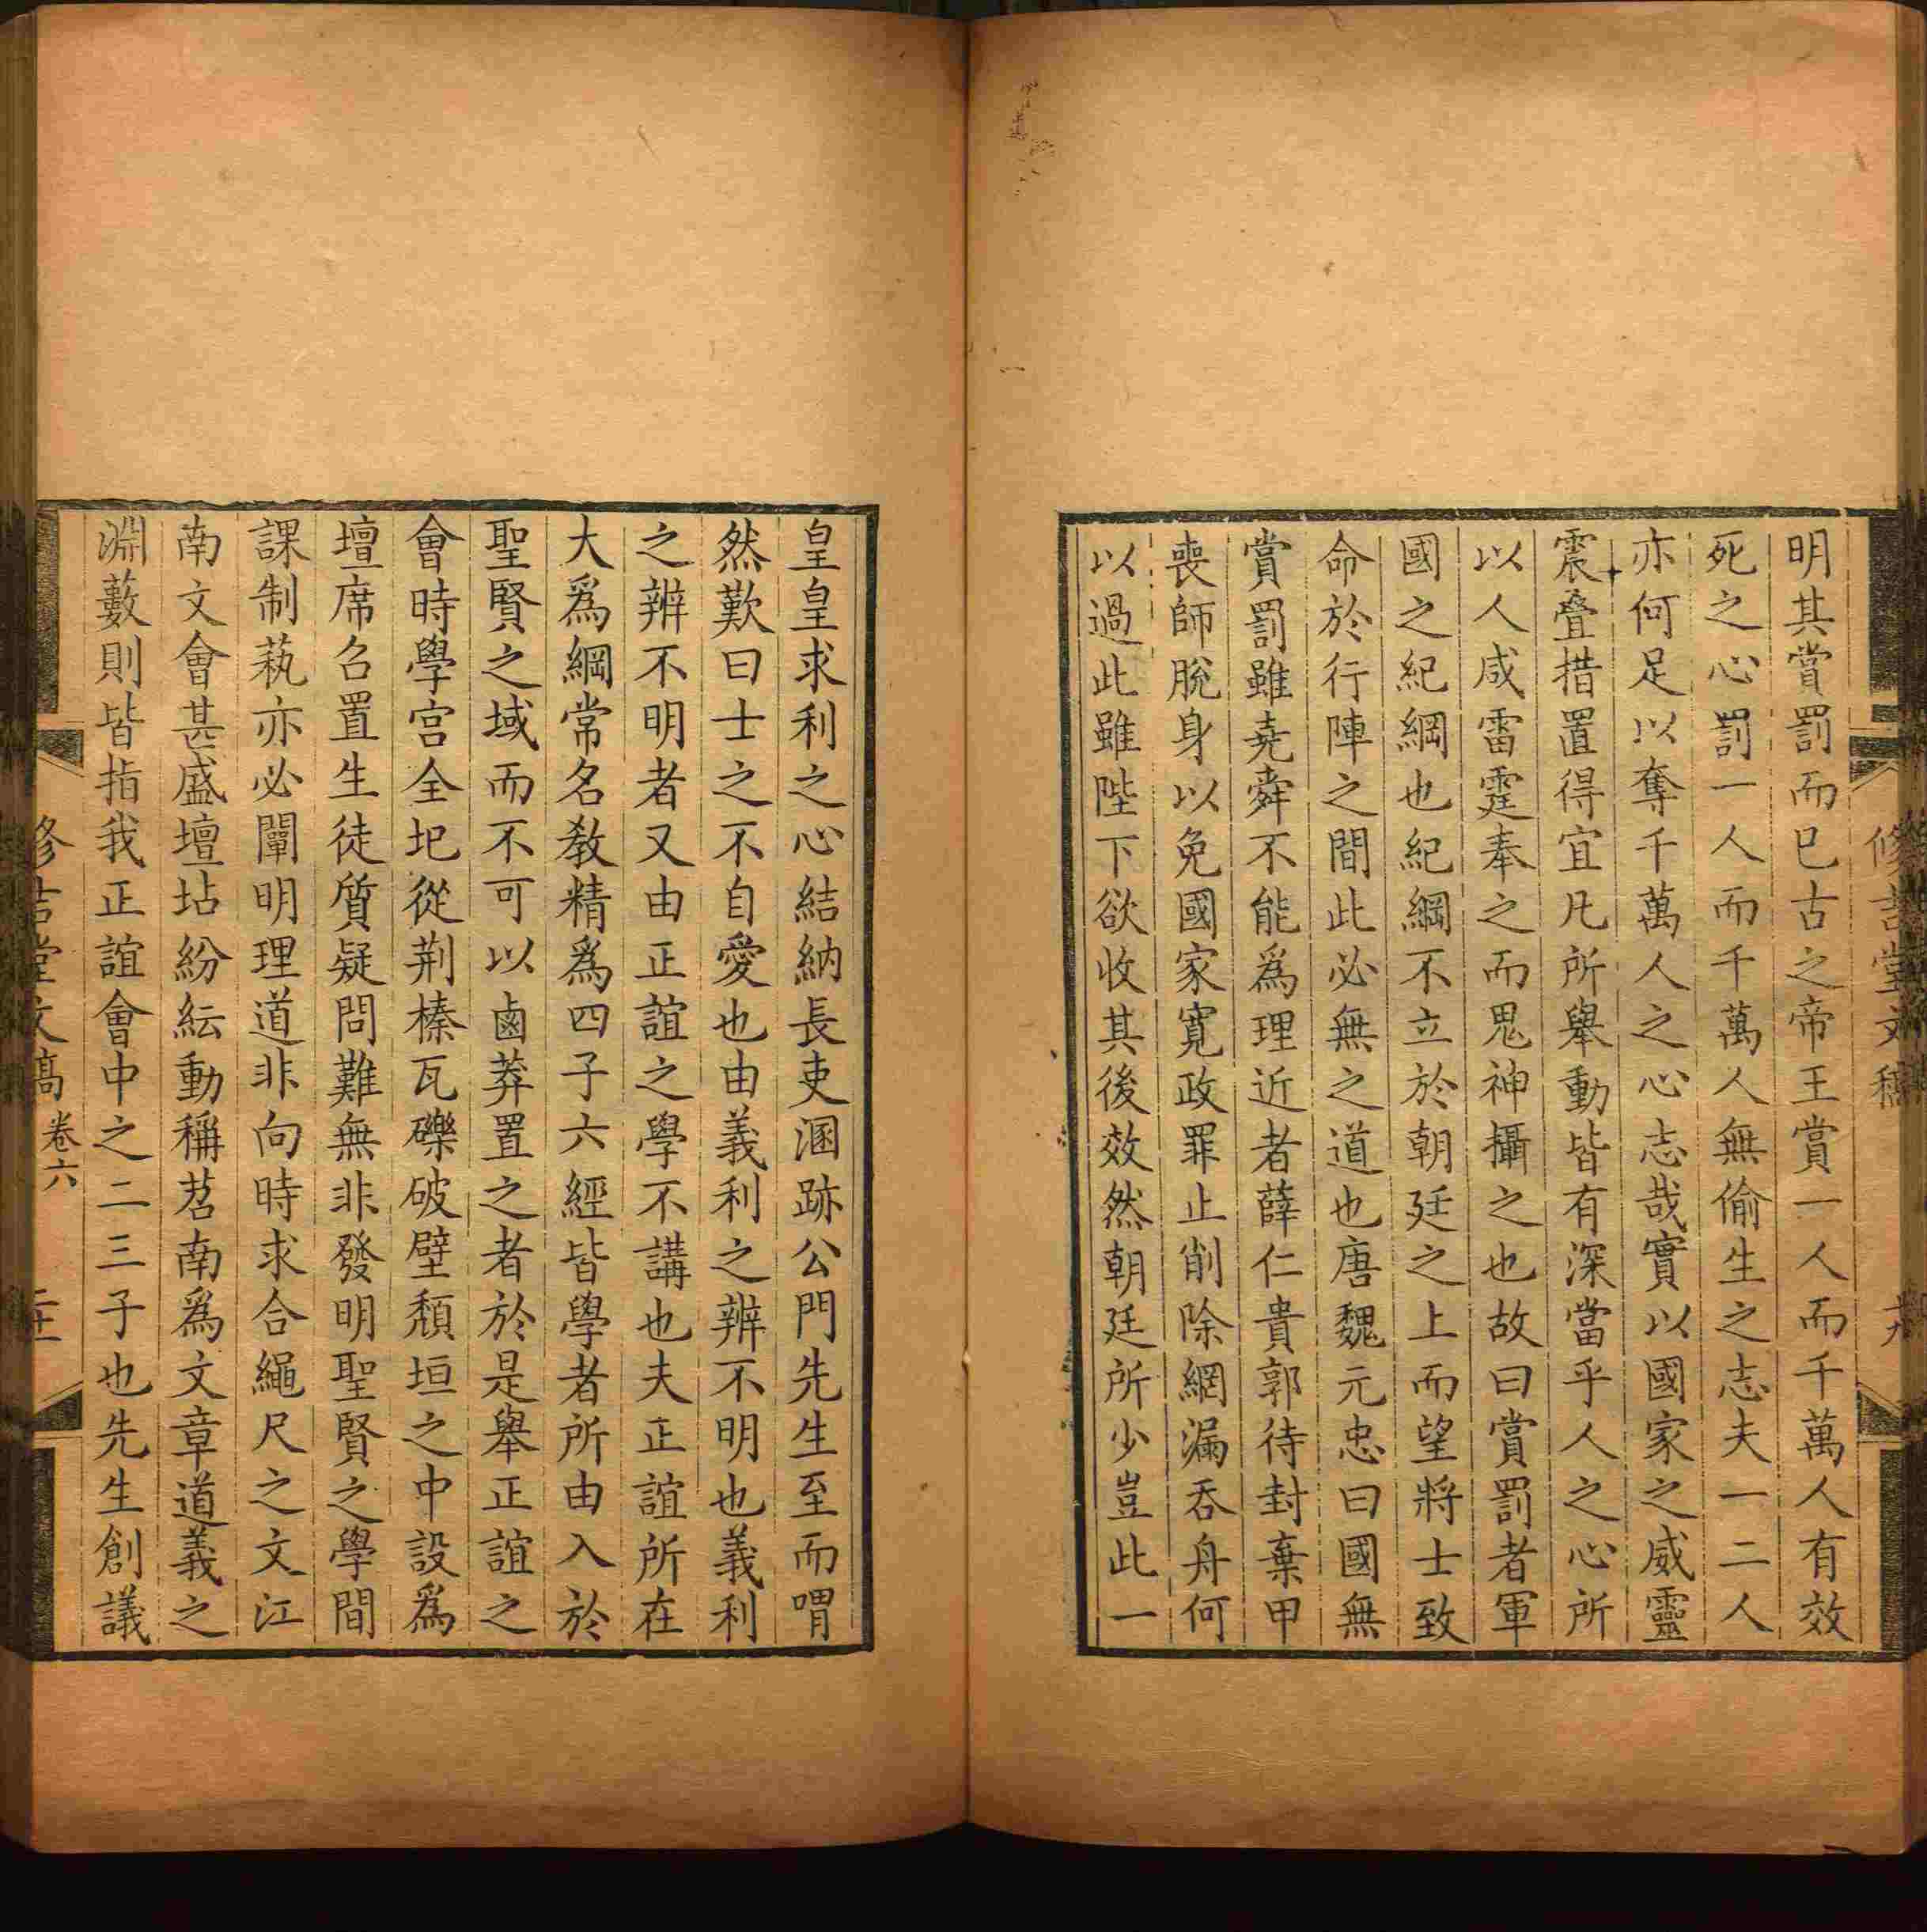 明其賞罰而已古之帝王賞一人而千萬人有效
死之心罰一人而千萬人無偷生之志夫一二人
亦何足以奪千萬人之心志哉實以國家之威靈
震疊措置得宜凡所舉動皆有深當乎人之心所
以人咸雷霆奉之而鬼神攝之也故曰賞罰者軍
國之紀綱也紀綱不立於朝廷之上而望將士致
命於行陣之間此必無之道也唐魏元忠曰國無
賞罰雖堯舜不能爲理近者薛仁貴郭待封棄甲
喪師脫身以免國家寬政罪止削除網漏吞舟何
以過此雖陛下欲收其後效然朝廷所少豈此一
修吉堂文稿
十九
皇皇求利之心結納長吏溷跡公門先生至而喟
然歎曰士之不自愛也由義利之辨不明也義利
之辨不明者又由正誼之學不講也夫正誼所在
大爲綱常名教精爲四子六經皆學者所由入於
聖賢之域而不可以鹵莽置之者於是舉正誼之
會時學宮全圯從荆榛瓦礫破壁頹垣之中設爲
壇席名置生徒質疑問難無非發明聖賢之學間
課制蓺亦必闡明理道非向時求合繩尺之文江
南文會甚盛壇坫紛紜動稱苕南爲文章道義之
淵藪則皆指我正誼會中之二三子也先生創議
修吉堂文稿
卷六